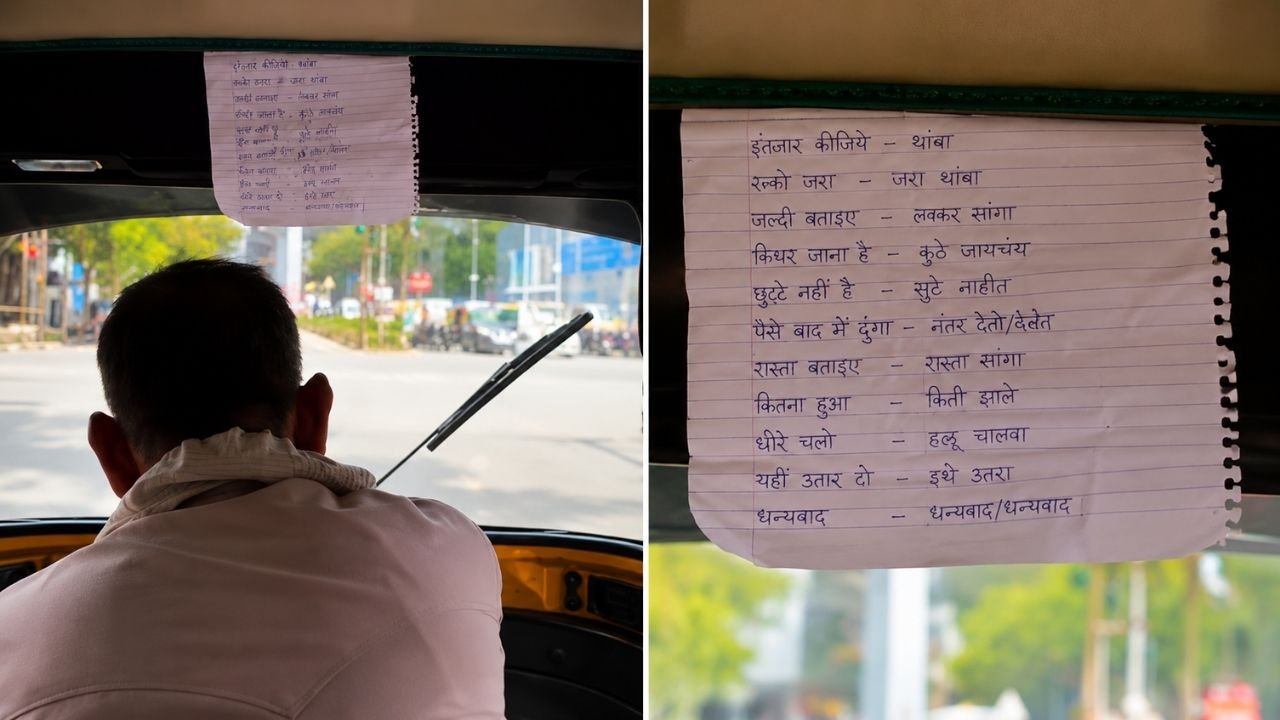 इंतजार कीजिये - थांबा
रुको जरा - जरा थांबा
जल्दी बताइए - लवकर सांगा
किधर जाना है - कुठे जायचंय
छुट्टे नहीं है - सुटे नाहीत
पैसे बाद में दुंगा - नंतर देतो/देवेत
रास्ता बताइए - रास्ता सांगा
कितना हुआ - किती झाले
धीरे चलो - हलू चालवा
यहीं उतार दो - इथे उतरा
धन्यबाद - धन्यबाद/धन्यवाद